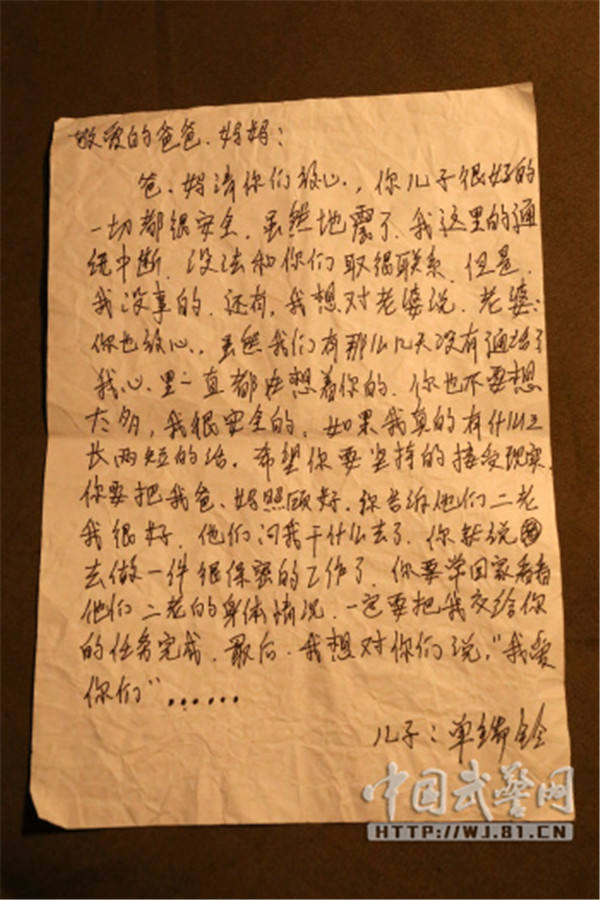 敬爱的爸爸、妈妈：
爸、妈请你们放心，你儿子很好的
一切都很安全，虽然地震了，我这里的通
统中断，没法和你们取得联系，但是，
我没事的，还有，我想对老婆说，老婆：
你也放心，虽然我们有那么几天没有通话了
我心里一直都在想着你的，你也不要想
太多，我很安全的，如果我真的有什么三
长两短的话，希望你要坚持的接受现实，
你要把我爸、妈照顾好，你告诉他们二老
我很好，他们问我干什么去了，你就说
去做一件很保密的工作了，你要常回家看看
他们二老的身体情况，一定要把我交给你
的任务完成，最后，我想对你们说，“我爱
你们”......
儿子：单
中国武警网
HTTP://WJ.81.CN